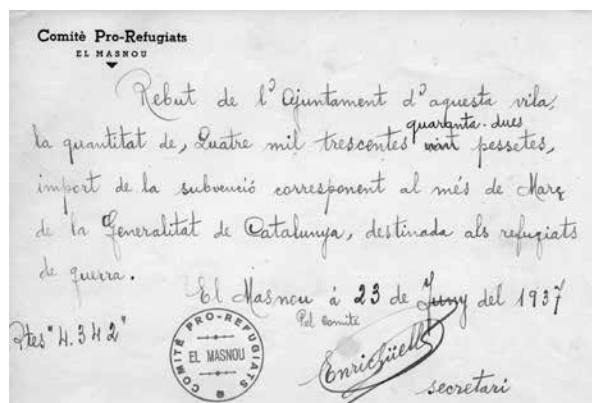 Comitè Pro-Refugiats
EL MASNOU
Rebut de l'Ajuntament d'aquesta vila,
quaranta-dues
la quantitat de, Quatre mil trescentes vint pessetes,
import de la subvenció corresponent al més de Març
de la Generalitat de Catalunya, destinada als refugiats
de guerra.
El Masnou á 23 de Juny del 1937
Pel Comité
Ptes "4.342"
COMITÈ PRO-REFUGIATS
EL MASNOU
Enric Güell
secretari